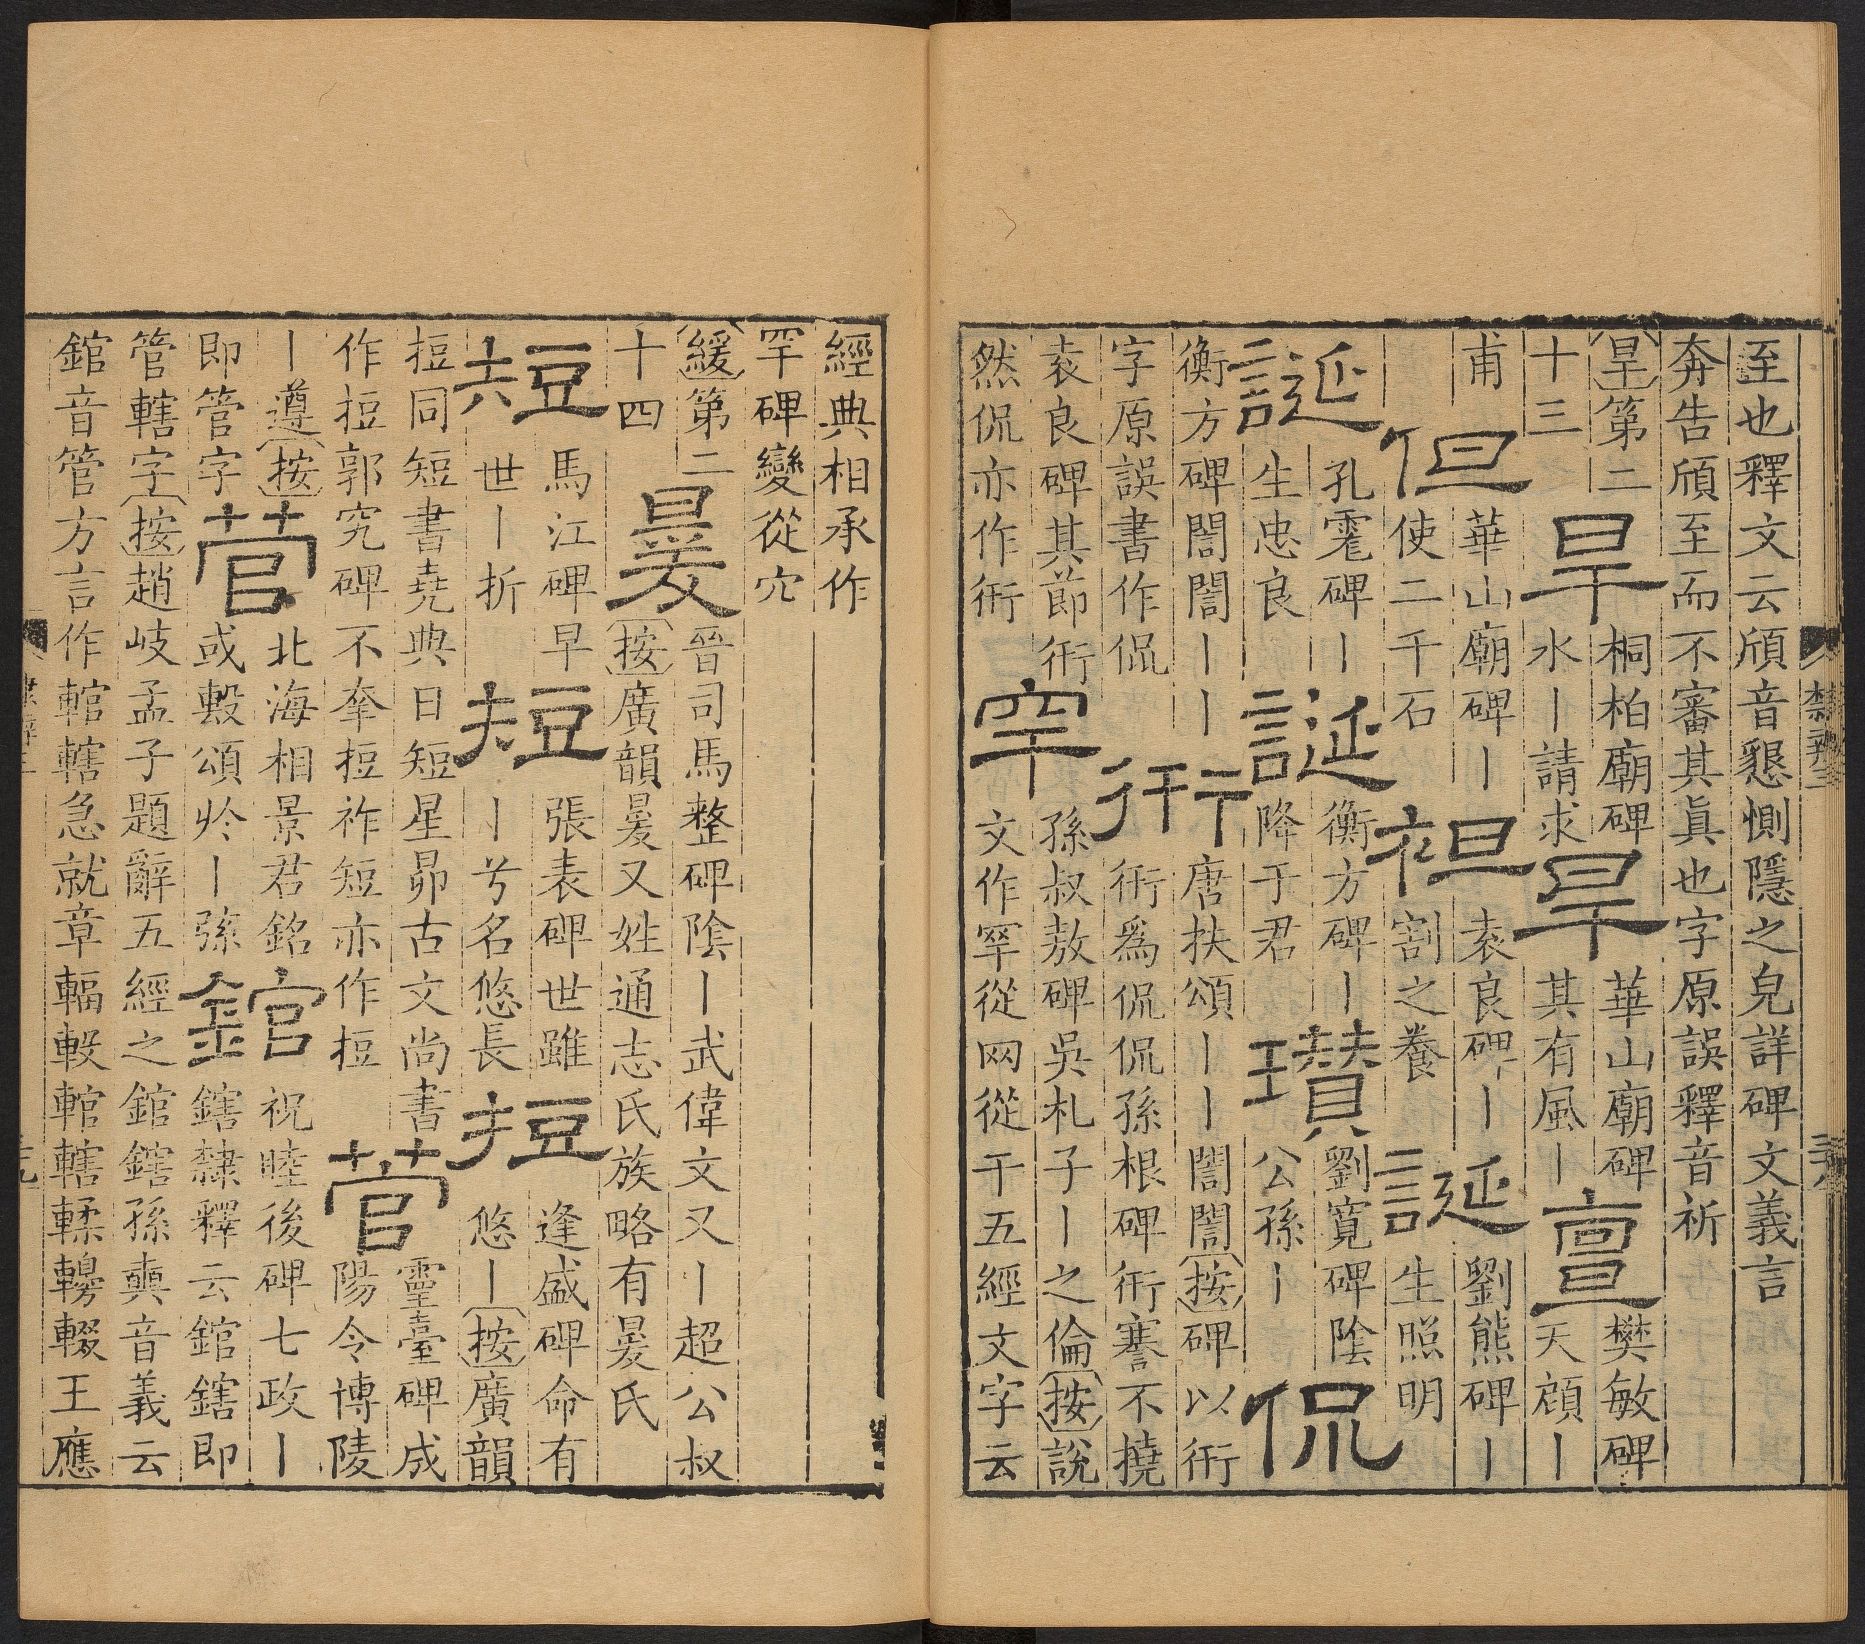 至也釋文云頎音懇惻隱之皃詳碑文義言
奔告頎至而不審其眞也字原誤釋音祈
旱第二
十三
旱
桐柏廟碑
水丨請求
旱
華山廟碑
其有風丨
亶
樊敏碑
天顧丨
甫
但
華山廟碑丨
使二千石
袒
袁良碑丨
割之養
誕
劉熊碑丨
生照明
誕
孔宙碑丨
生忠良
誕
衡方碑丨
降于君
瓚
劉寬碑陰
公孫丨
侃
衡方碑誾誾丨丨
字原誤書作侃
衎
唐扶頌丨丨誾誾按碑以衎
衎爲侃侃孫根碑衎謇不撓
袁良碑其節衎
然侃亦作衎
罕
孫叔敖碑吳札子丨之倫按說
文作罕從网從干五經文字云
經典相承作
罕碑變從穴
緩第二
十四
㬊
晉司馬整碑陰丨武偉文又丨超公叔
按廣韻㬊又姓通志氏族略有㬊氏
短
馬江碑早
世丨折
短
張表碑世雖
丨兮名悠長
挳
逢盛碑命有
悠丨按廣韻
挳同短書堯典日短星昴古文尚書
作挳郭究碑不夆挳祚短亦作挳
菅
靈臺碑成
陽令博陵
丨遵按
即管字
菅
北海相景君銘
或㲄頌於丨弦
錧
祝睦後碑七政丨
鎋隸釋云錧鎋即
管轄字按趙岐孟子題辭五經之錧鎋孫奭音義云
錧音管方言作輨轄急就章輻轂輨轄輮轑輟王應